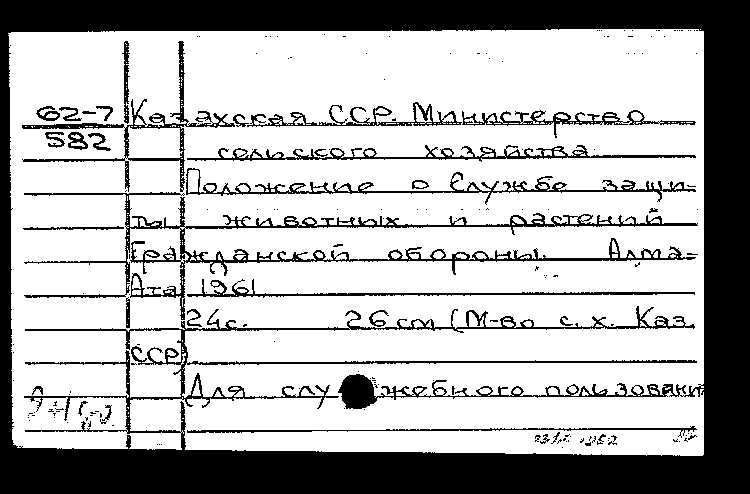 62-7 Казахская ССР. Министерство
582 сельского хозяйства.
Положение о Службе защи-
ты животных и растений
Гражданской обороны. Алма-
Ата 1961
24с. 26см (М-во с. х. Каз.
ССР).
Для служебного пользовани